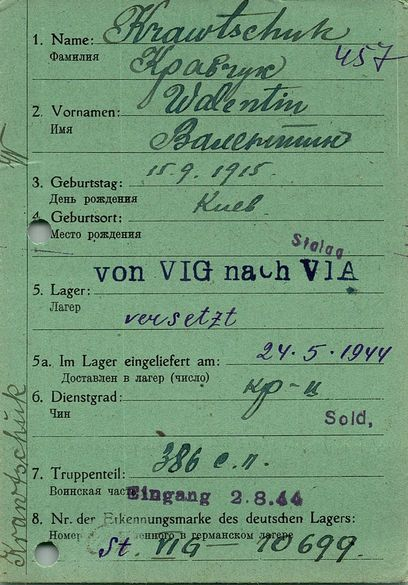 1. Name: Krawtschuk
Фамилия Кравчук 457
2. Vornamen: Walentin
Имя Валентин
3. Geburtstag: 15.9.1915.
День рождения
4. Geburtsort: Киев
Место рождения
Stalag
von VIG nach VIA
5. Lager:
Лагер versetzt
5a. Im Lager eingeliefert am: 24.5.1944
Доставлен в лагер (число)
6. Dienstgrad: кр-ц
Чин Sold,
7. Truppenteil: 386 с.п.
Воинская часть Eingang 2.8.44
8. Nr. der Erkennungsmarke des deutschen Lagers:
Номер в германском лагере
St. VIG - 10699.
Krawtschuk